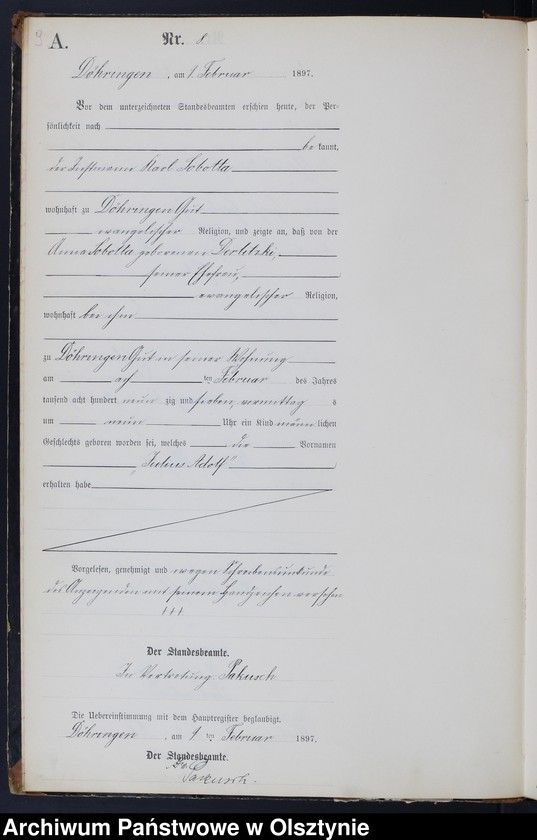 9
A.
Nr. 8
Döhringen, am 9. Februar 1897.
Vor dem unterzeichneten Standesbeamten erschien heute, der Per-
sönlichkeit nach
be kannt,
der Instmann Karl Sobotta
wohnhaft zu Döhringen Gut
evangelischer Religion, und zeigte an, daß von der
Anna Sobotta geborenen
seiner Ehefrau,
evangelischer Religion,
wohnhaft bei ihm
zu Döhringen Gut in seiner Wohnung
am acht ten Februar des Jahres
tausend acht hundert neun zig und sieben, vormittag s
um neun Uhr ein Kind männ lichen
Geschlechts geboren worden sei, welches die Vornamen
"Julius Adolf"
erhalten habe
Vorgelesen, genehmigt und wegen Schreibensunkunde
des Anzeigenden mit seinem Handzeichen versehen
+++
Der Standesbeamte.
In Vertretung Pakusch
Die Uebereinstimmung mit dem Hauptregister beglaubigt.
Döhringen, am 9. ten Februar 1897.
Der Standesbeamte.
Pakusch.
Archiwum Państwowe w Olsztynie